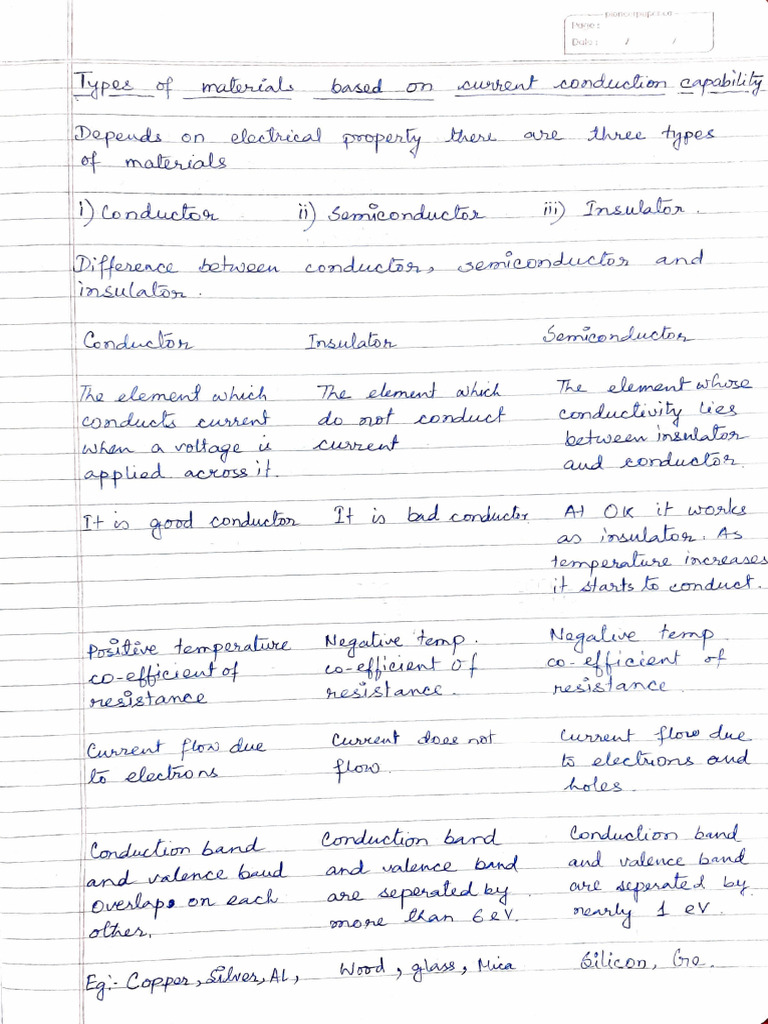 Page:
Date: / /
Types of materials based on current conduction capability
Depends on electrical property there are three types
of materials
i) Conductor ii) Semiconductor iii) Insulator.
Difference between conductor, semiconductor and
insulator.
Conductor Insulator Semiconductor
The element which The element which The element whose
conducts current do not conduct conductivity lies
when a voltage is current between insulator
applied across it. and conductor.
It is good conductor It is bad conductor At OK it works
as insulator. As
temperature increases
it starts to conduct.
Positive temperature Negative temp. Negative temp.
co-efficient of co-efficient of co-efficient of
resistance resistance. resistance.
Current flow due Current does not Current flow due
to electrons flow. to electrons and
holes.
Conduction band Conduction band Conduction band
and valence band and valence band and valence band
overlaps on each are seperated by are seperated by
other. more than 6 eV. nearly 1 eV.
Eg:- Copper, Silver, Al, Wood, glass, Mica Silicon, Ge.